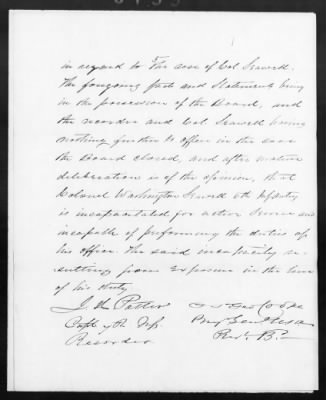 in regard to The case of Col Seawell.
The foregoing facts and Statements being
in the possession of the Board, and
the recorder and Col Seawell having
nothing further to offer in the case
the Board closed, and after mature
deliberation is of the opinion, that
Colonel Washington Seawell 6th Infantry
is incapacitated for active Service and
incapable of performing the duties of
his office. The said incapacity re-
sulting from Exposure in the line
of his duty.
Capt 7th Inf.
Recorder